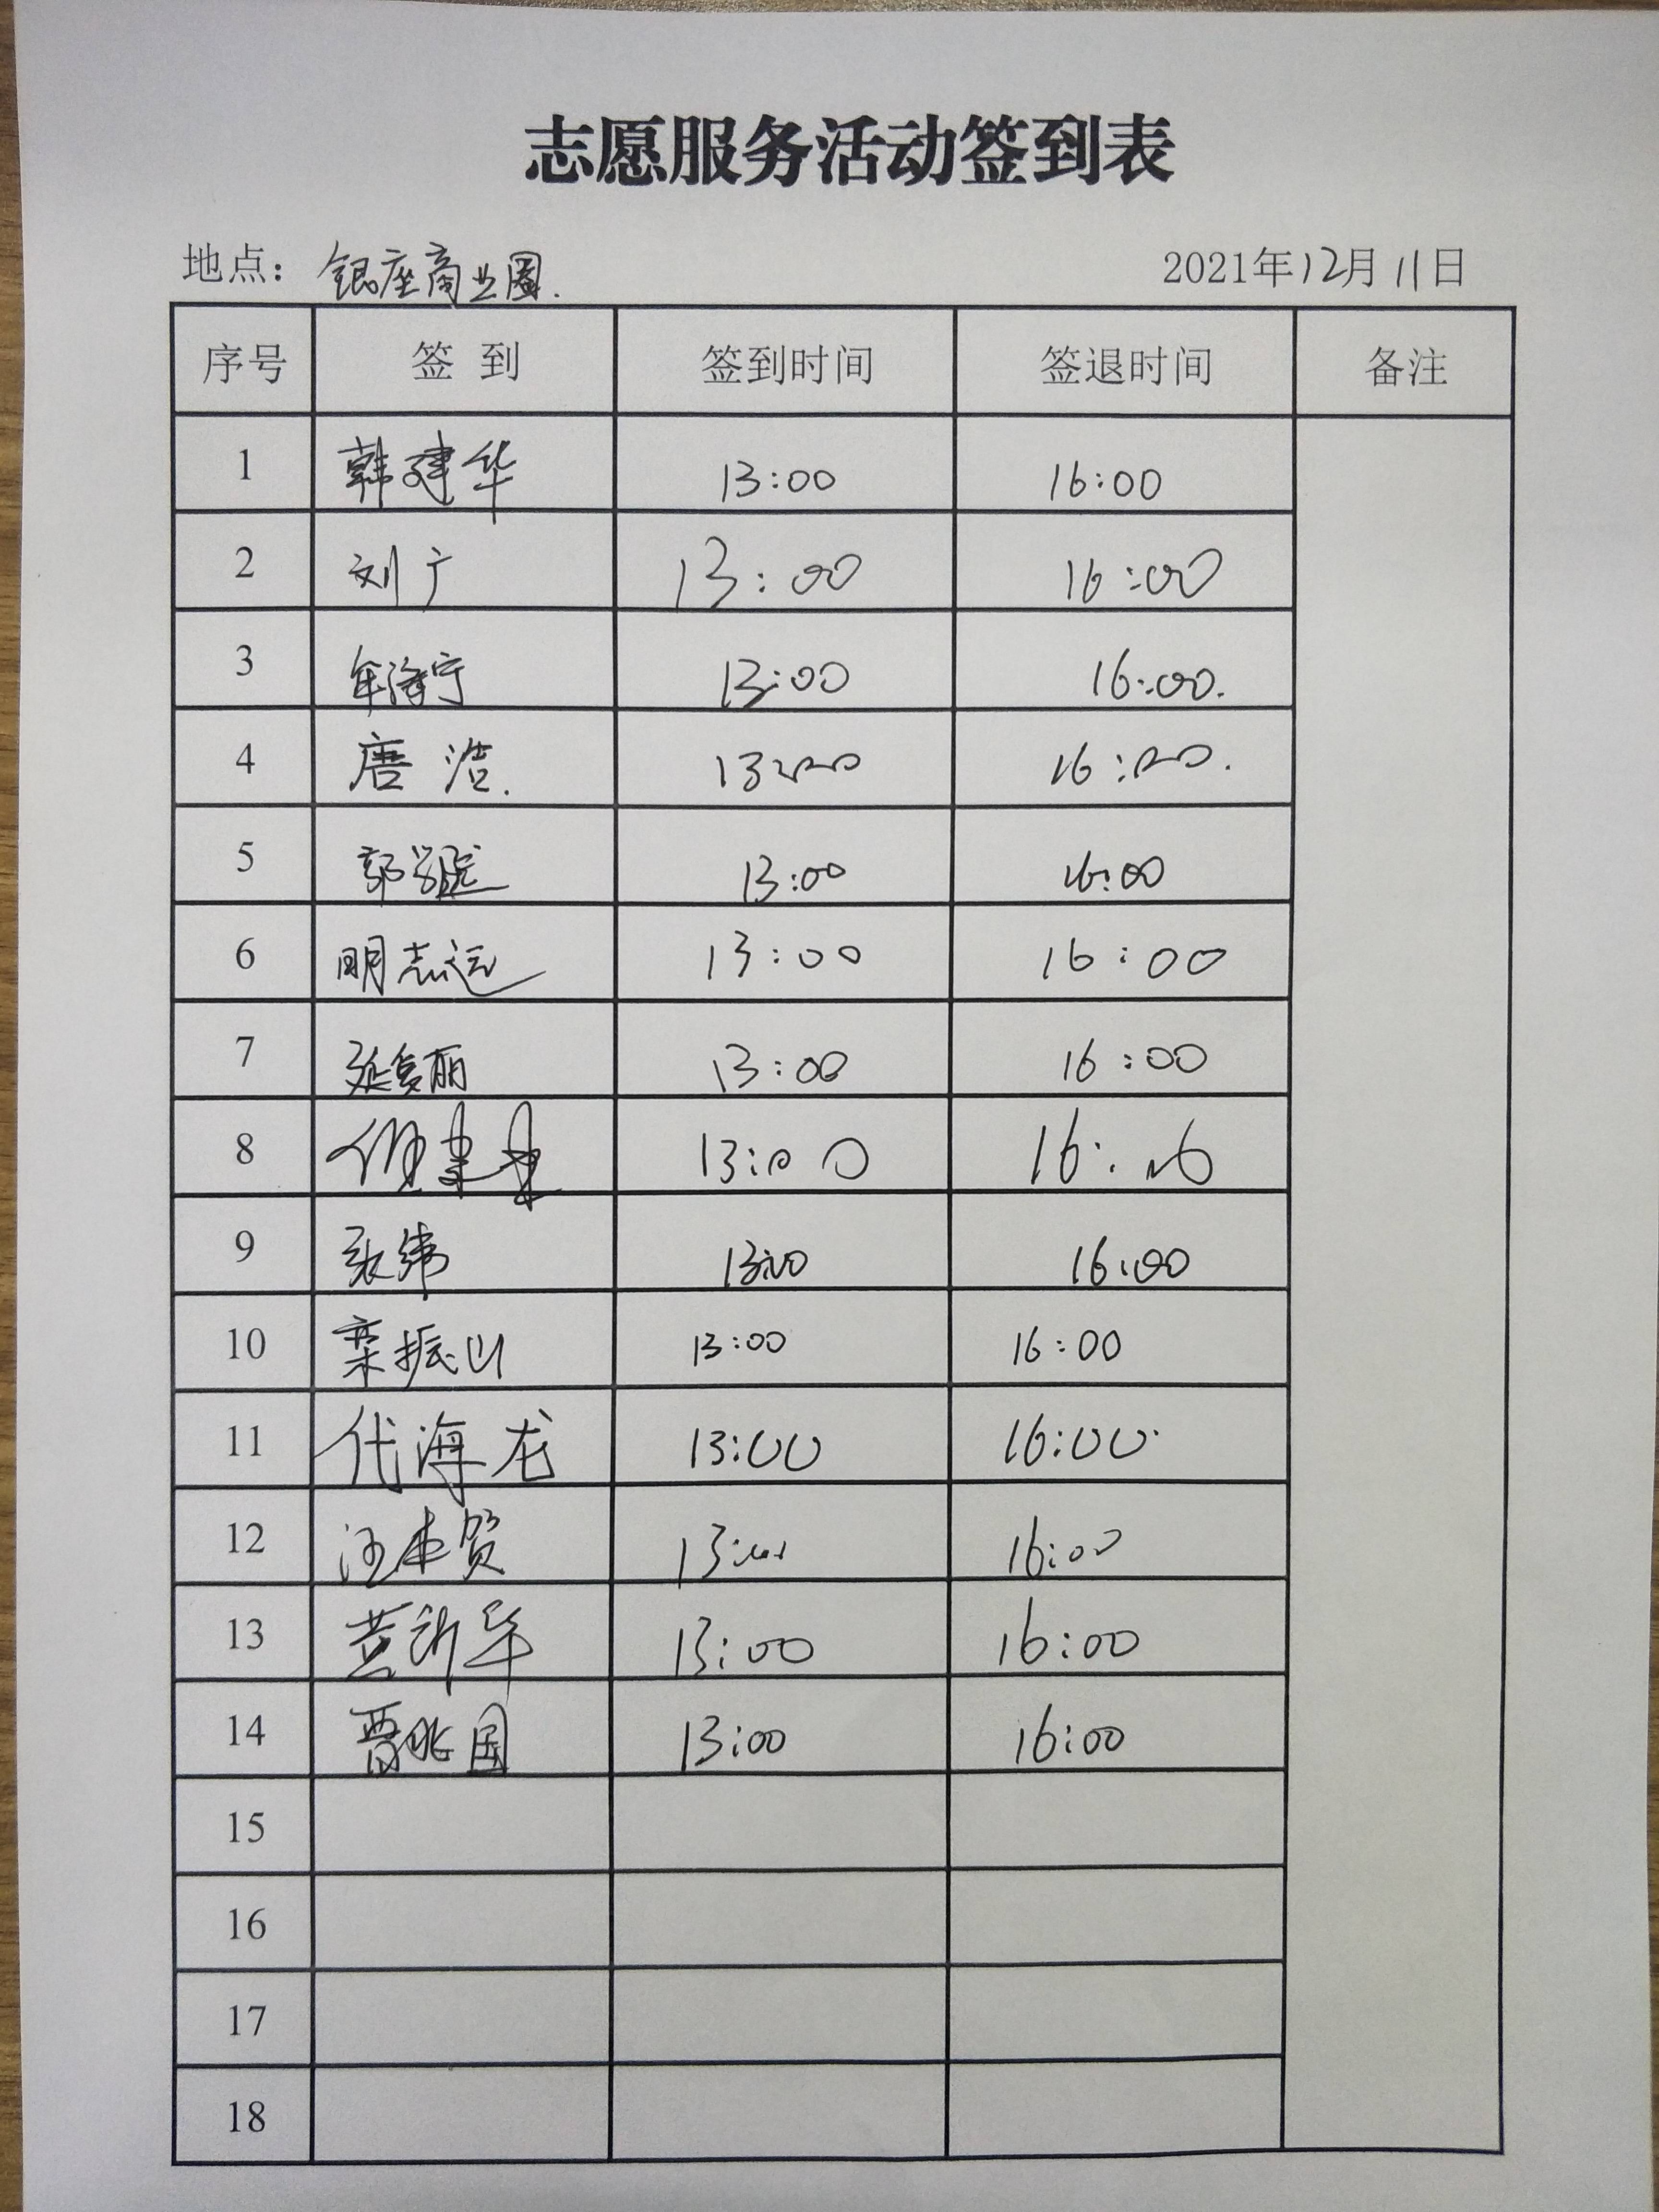 志愿服务活动签到表
地点：银座商业圈. 2021年12月11日
序号 签 到 签到时间 签退时间 备注
1 韩建华 13:00 16:00
2 刘广 13:00 16:00
3 牟海宁 13:00 16:00.
4 唐浩. 13:00 16:00.
5 郭学 13:00 16:00
6 明志远 13:00 16:00
7 张美丽 13:00 16:00
8 13:00 16:00
9 张纬 13:00 16:00
10 栾振山 13:00 16:00
11 代海龙 13:00 16:00
12 汪本贺 13:00 16:00
13 黄新华 13:00 16:00
14 贾兆国 13:00 16:00
15
16
17
18